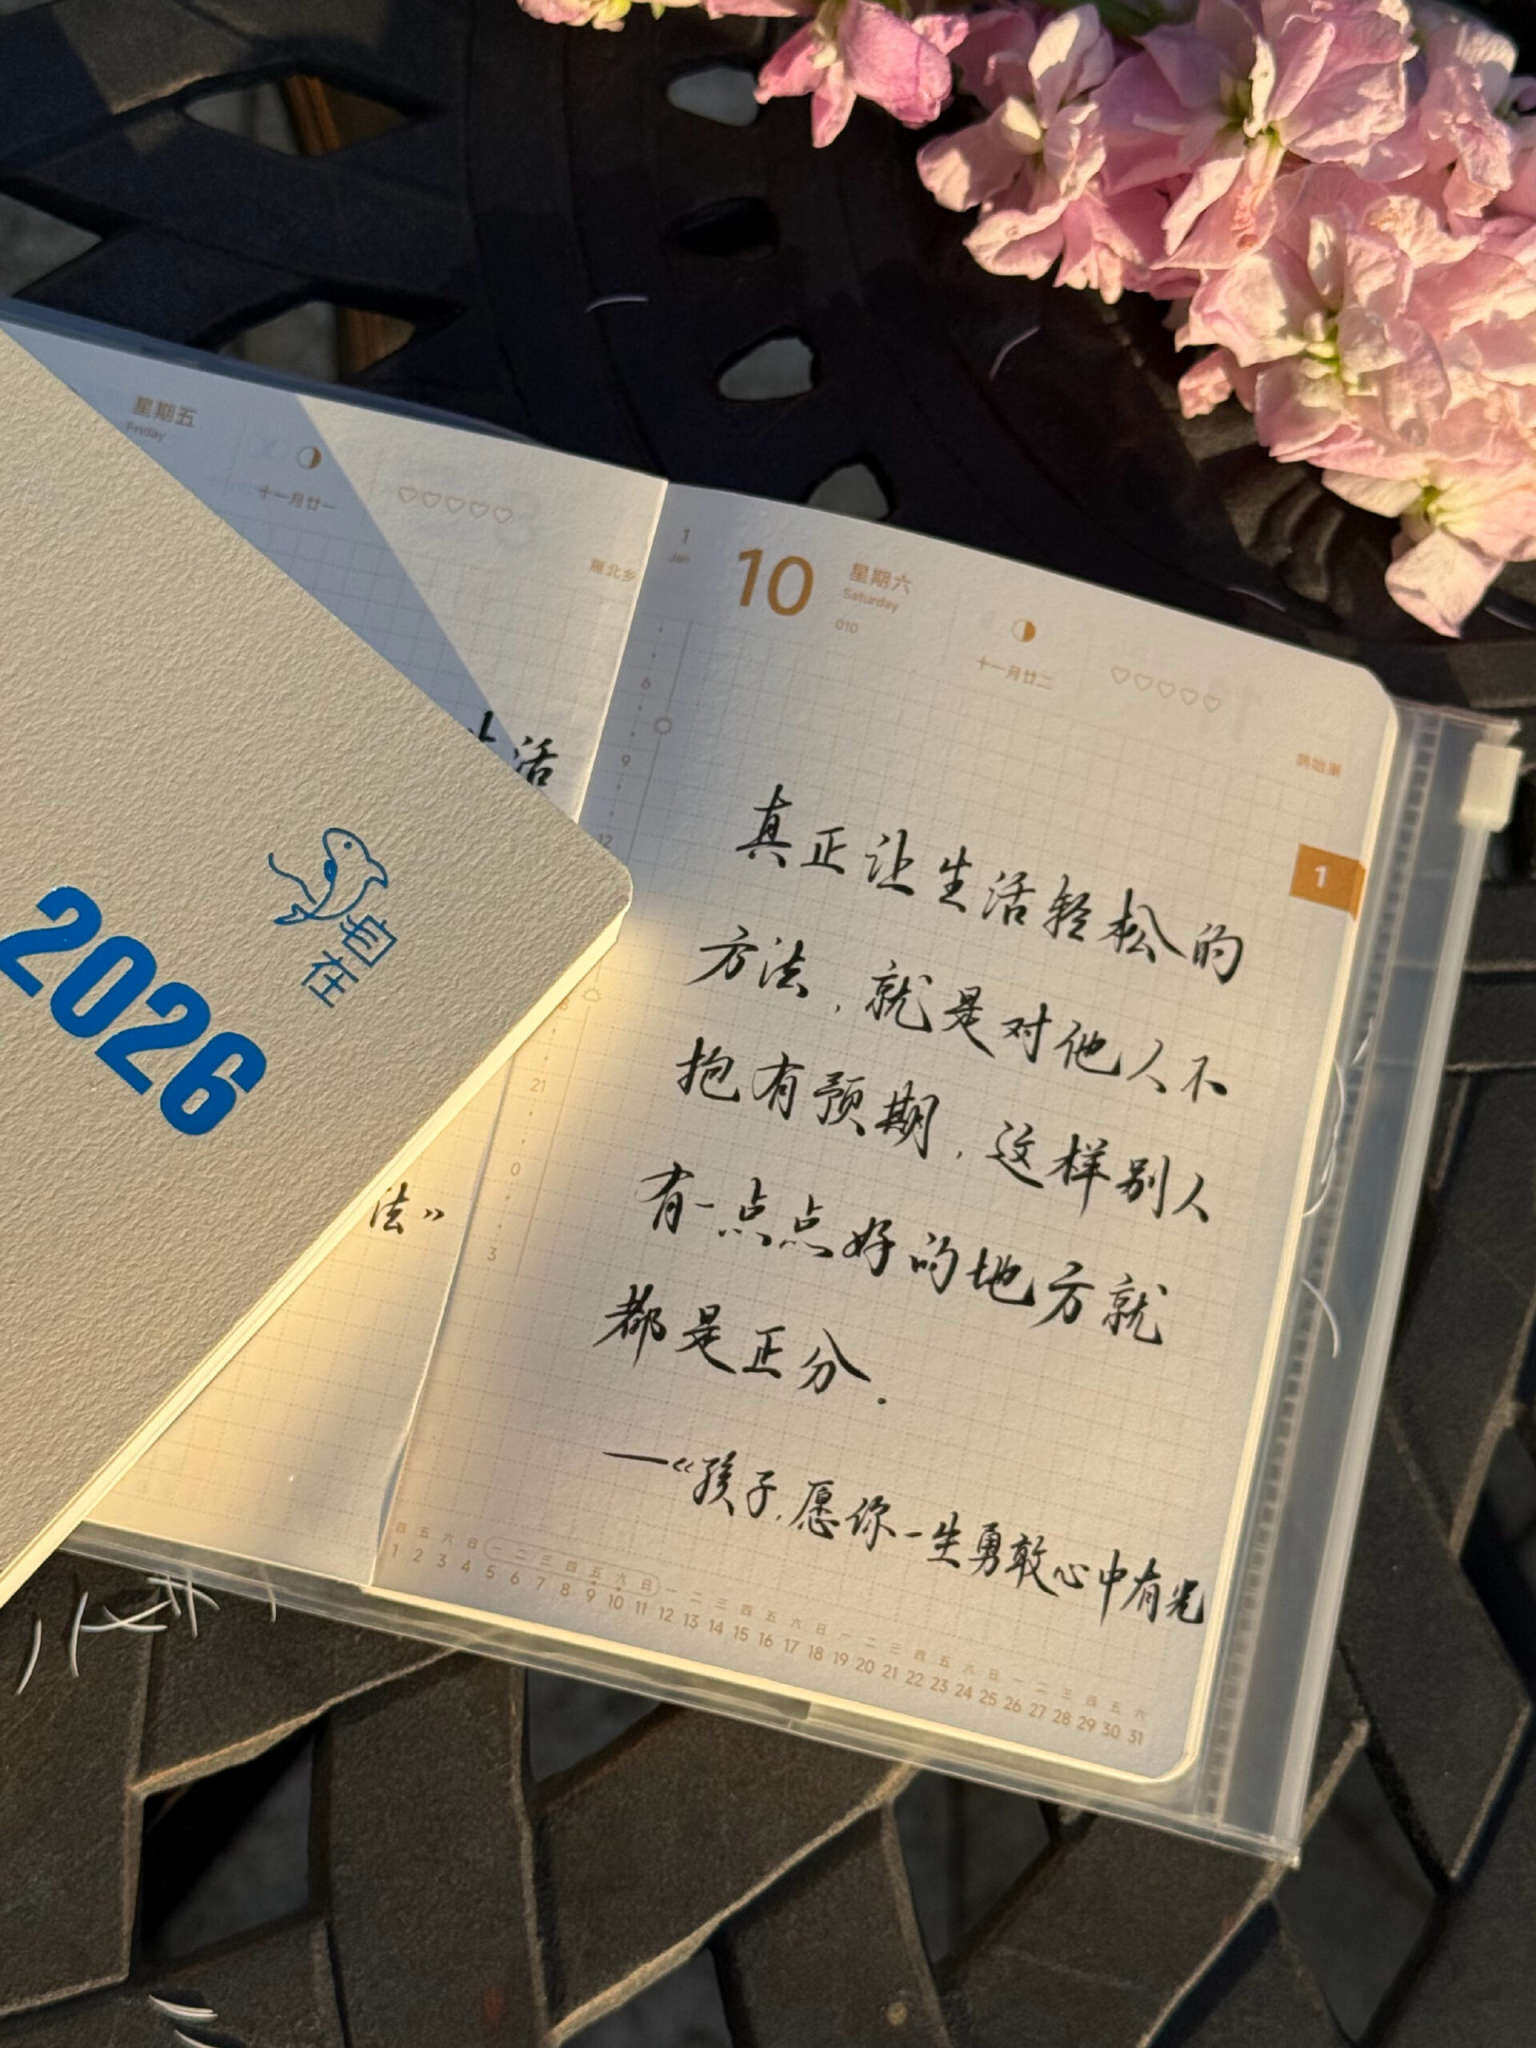 星期五
Friday
十一月廿一
活
法》
自在
2026
1
Jan
10
星期六
Saturday
010
十一月廿二
6
9
12
21
0
3
1
真正让生活轻松的
方法，就是对他人不
抱有预期，这样别人
有一点点好的地方就
都是正分．
—《孩子，愿你一生勇敢心中有光
四 五 六 日 一 二 三 四 五 六 日 一 二 三 四 五 六 日 一 二 三 四 五 六 日 一 二 三 四 五 六
1 2 3 4 5 6 7 8 9 10 11 12 13 14 15 16 17 18 19 20 21 22 23 24 25 26 27 28 29 30 31